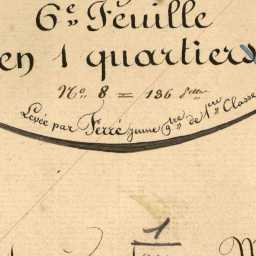 6e Feuille
en 1 quartier
No. 8 = 136
Levée par Ferré jeune gre de 1re Classe
1